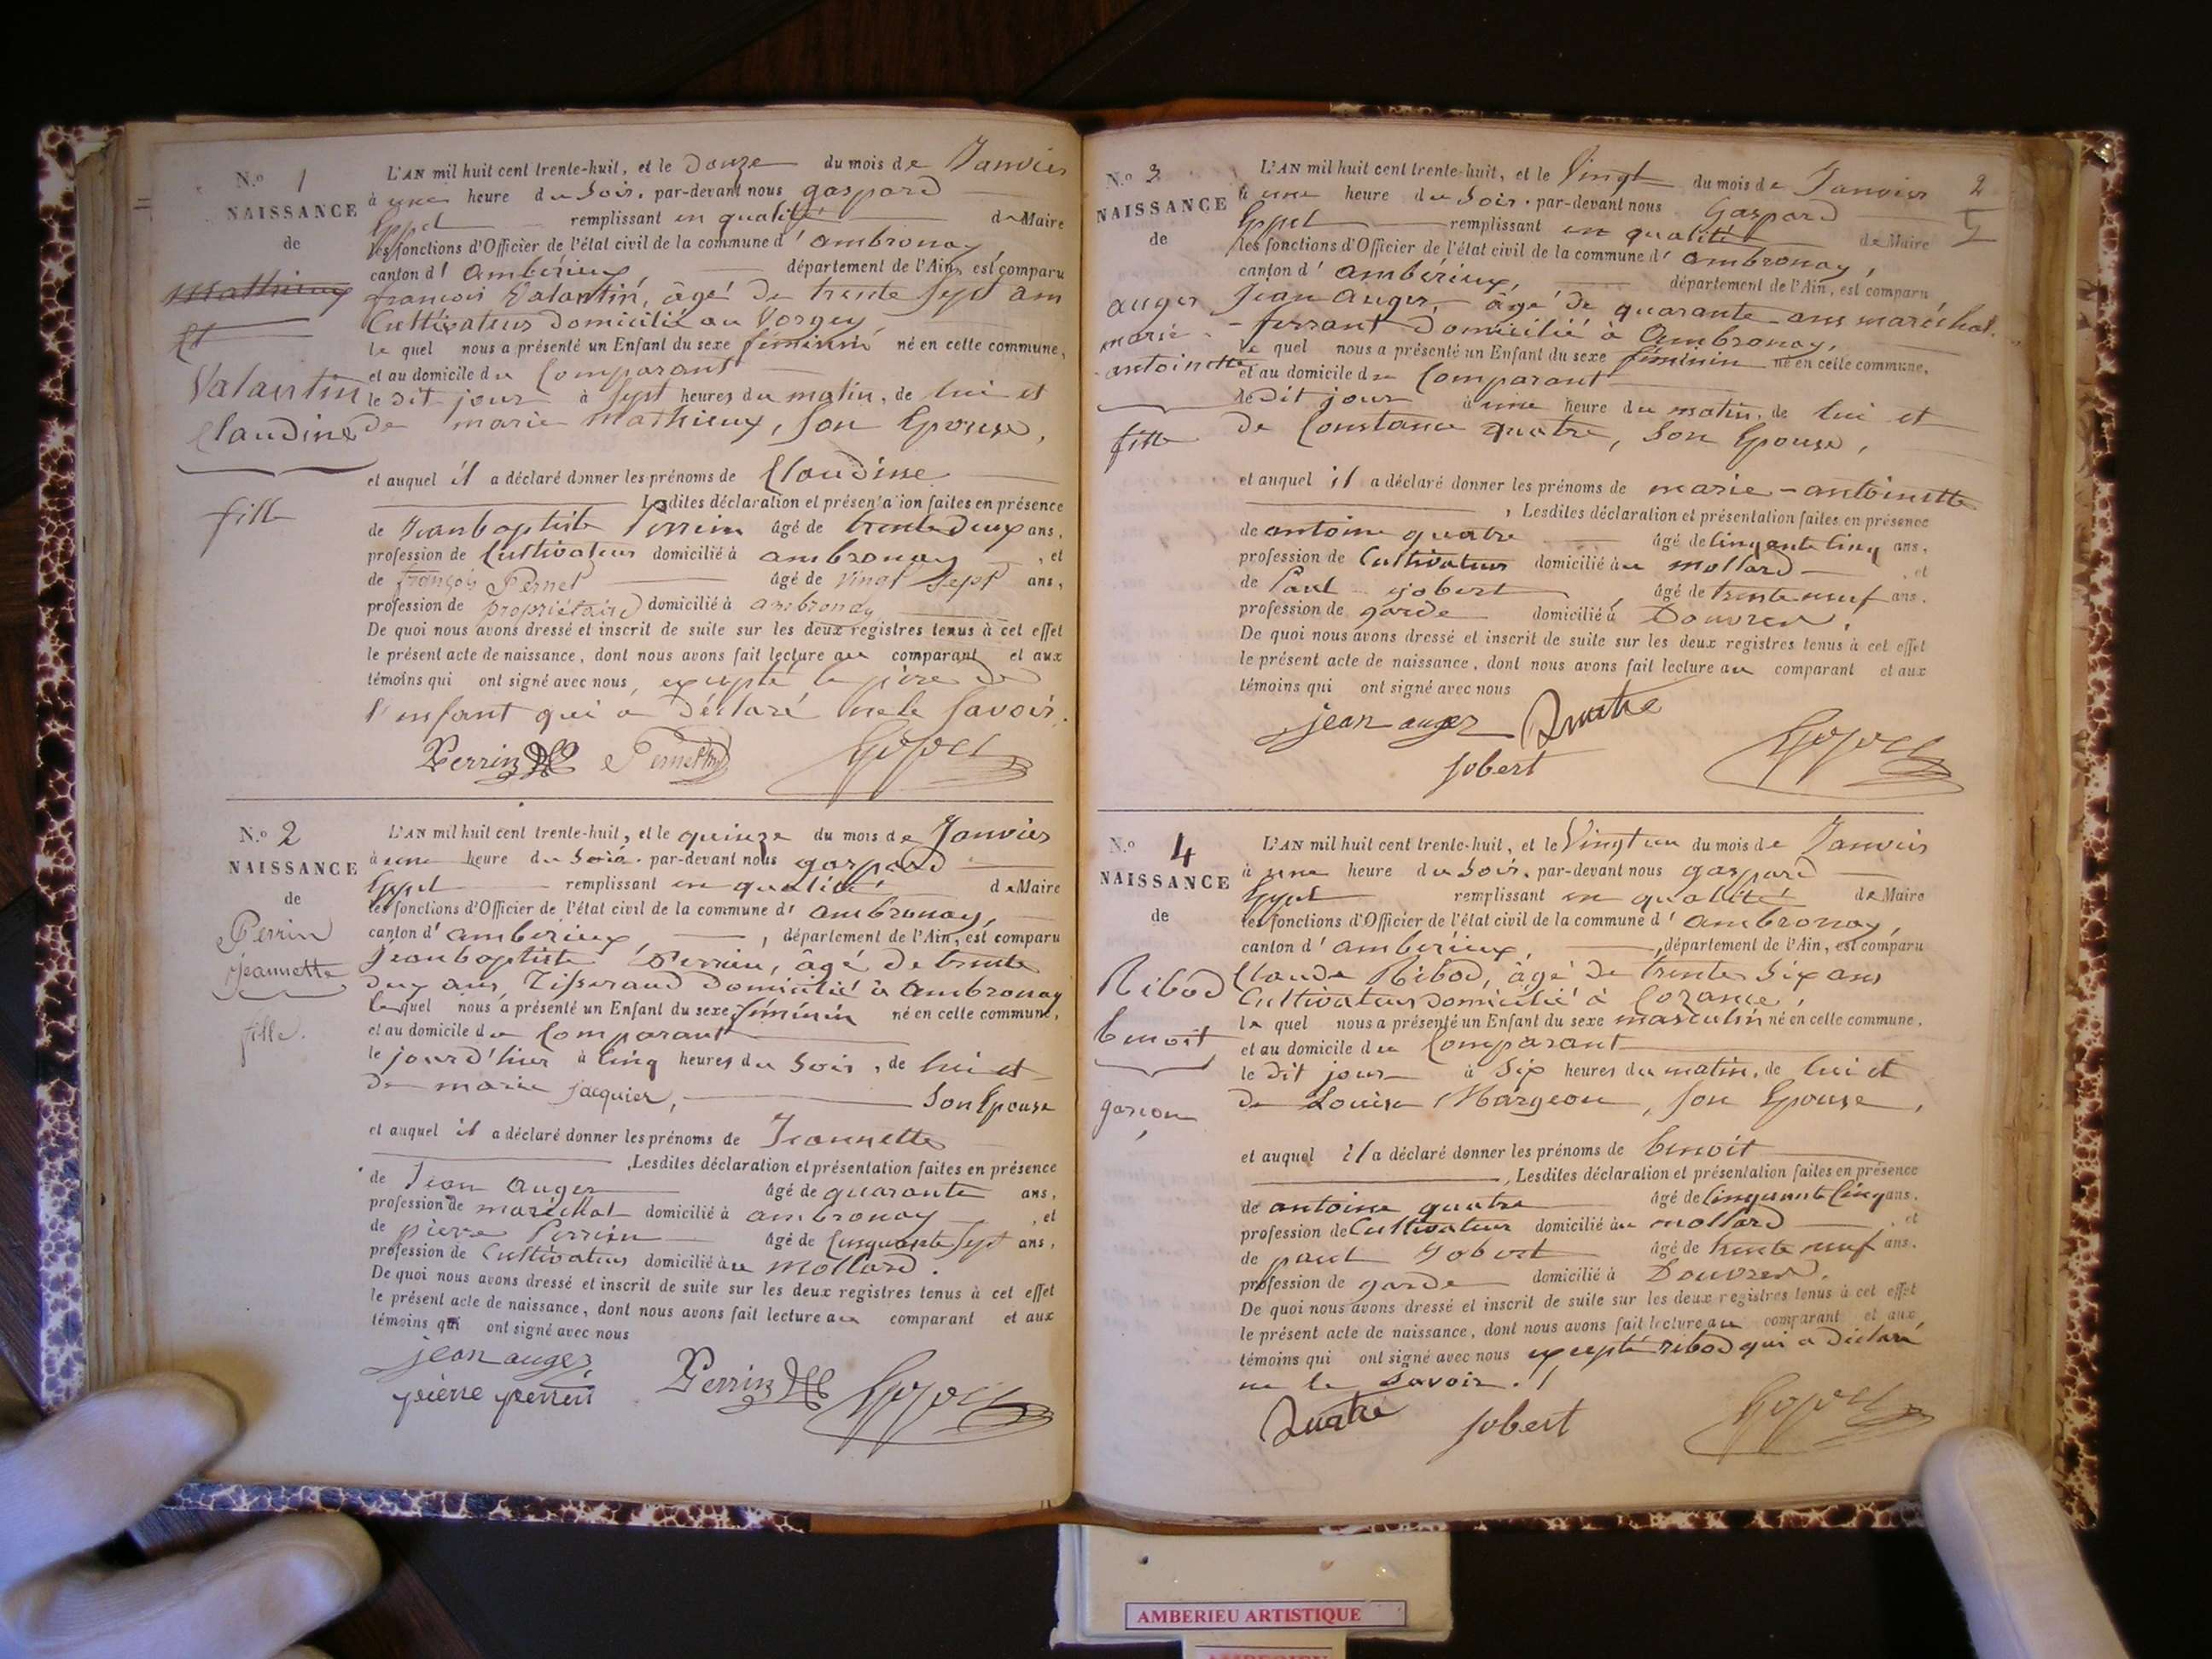 N.º 1
NAISSANCE
de
Mathieux
et
Valantin
Claudine
fille
L'AN mil huit cent trente-huit, et le Douze du mois de Janvier
à une heure du Soir, par-devant nous gaspard
Eppel remplissant en qualité de Maire
les fonctions d'Officier de l'état civil de la commune d'ambronay,
canton d'Ambérieux, département de l'Ain, est comparu
françois Valantin, âgé de trente sept ans
Cultivateur domicilié au Vorgey
le quel nous a présenté un Enfant du sexe féminin né en cette commune,
et au domicile du Comparant
le dit jour à Sept heures du matin, de lui et
de marie mathieux, Son Epouse,
et auquel il a déclaré donner les prénoms de Claudine
Lesdites déclaration et présentation faites en présence
de Jeanbaptiste Perrin âgé de trente deux ans,
profession de Cultivateur domicilié à ambronay, et
de françois Pernet âgé de vingt sept ans,
profession de propriétaire domicilié à ambronay
De quoi nous avons dressé et inscrit de suite sur les deux registres tenus à cet effet
le présent acte de naissance, dont nous avons fait lecture au comparant et aux
témoins qui ont signé avec nous, excepté le père de
l'enfant qui a déclaré ne le Savoir.
Perrin Pernet Eppel
N.º 2
NAISSANCE
de
Perrin
jeannette
fille.
L'AN mil huit cent trente-huit, et le quinze du mois de Janvier
à une heure du Soir, par-devant nous gaspard
Eppel remplissant en qualité de Maire
les fonctions d'Officier de l'état civil de la commune d'ambronay,
canton d'amberieux, département de l'Ain, est comparu
Jeanbaptiste Perrin, âgé de trente
deux ans, Tisserand domicilié à Ambronay
lequel nous a présenté un Enfant du sexe féminin né en cette commune,
et au domicile du Comparant
le jour d'hier à Cinq heures du Soir, de lui et
de marie jacquier, Son Epouse
et auquel il a déclaré donner les prénoms de Jeannette
,Lesdites déclaration et présentation faites en présence
de Jean auger âgé de quarante ans,
profession de maréchal domicilié à ambronay, et
de pierre Perrin âgé de Cinquante Sept ans,
profession de Cultivateur domicilié au mollard.
De quoi nous avons dressé et inscrit de suite sur les deux registres tenus à cet effet
le présent acte de naissance, dont nous avons fait lecture au comparant et aux
témoins qui ont signé avec nous
jean auger
pierre perrin Perrin Eppel
N.º 3
NAISSANCE
de
auger
marie-
antoinette
fille
2
L'AN mil huit cent trente-huit, et le Vingt du mois de Janvier
à une heure du Soir, par-devant nous Gaspard
Eppel remplissant en qualité de Maire
les fonctions d'Officier de l'état civil de la commune d'ambronay,
canton d'ambérieux, département de l'Ain, est comparu
Jean auger, âgé de quarante ans maréchal-
ferrant domicilié à Ambronay,
le quel nous a présenté un Enfant du sexe féminin né en cette commune,
et au domicile du Comparant
le dit jour à une heure du matin, de lui et
de Constance quatre, Son Epouse,
et auquel il a déclaré donner les prénoms de marie-antoinette
, Lesdites déclaration et présentation faites en présence
de antoine quatre âgé de Cinquante Cinq ans,
profession de Cultivateur domicilié au mollard, et
de Paul jobert, âgé de trente neuf ans,
profession de garde domicilié à Douvres,
De quoi nous avons dressé et inscrit de suite sur les deux registres tenus à cet effet
le présent acte de naissance, dont nous avons fait lecture au comparant et aux
témoins qui ont signé avec nous
jean auger Quatre
jobert Eppel
N.º 4
NAISSANCE
de
Ribod
benoit
garçon
L'AN mil huit cent trente-huit, et le Vingt un du mois de Janvier
à une heure du Soir, par-devant nous gaspard
Eppel remplissant en qualité de Maire
les fonctions d'Officier de l'état civil de la commune d'ambronay,
canton d'ambérieux, département de l'Ain, est comparu
Claude Ribod, âgé de trente Six ans
Cultivateur domicilié à Cozance,
le quel nous a présenté un Enfant du sexe masculin né en cette commune,
et au domicile du Comparant
le dit jour à Six heures du matin, de lui et
de Louise Margeon, Son Epouse,
et auquel il a déclaré donner les prénoms de benoit
, Lesdites déclaration et présentation faites en présence
de antoine quatre âgé de Cinquante Cinq ans,
profession de Cultivateur domicilié au mollard, et
de paul Jobert âgé de trente neuf ans,
profession de garde domicilié à Douvres.
De quoi nous avons dressé et inscrit de suite sur les deux registres tenus à cet effet
le présent acte de naissance, dont nous avons fait lecture au comparant et aux
témoins qui ont signé avec nous excepté ribod qui a déclaré
ne le Savoir.
Quatre jobert Eppel
AMBERIEU ARTISTIQUE
AMBERIEU